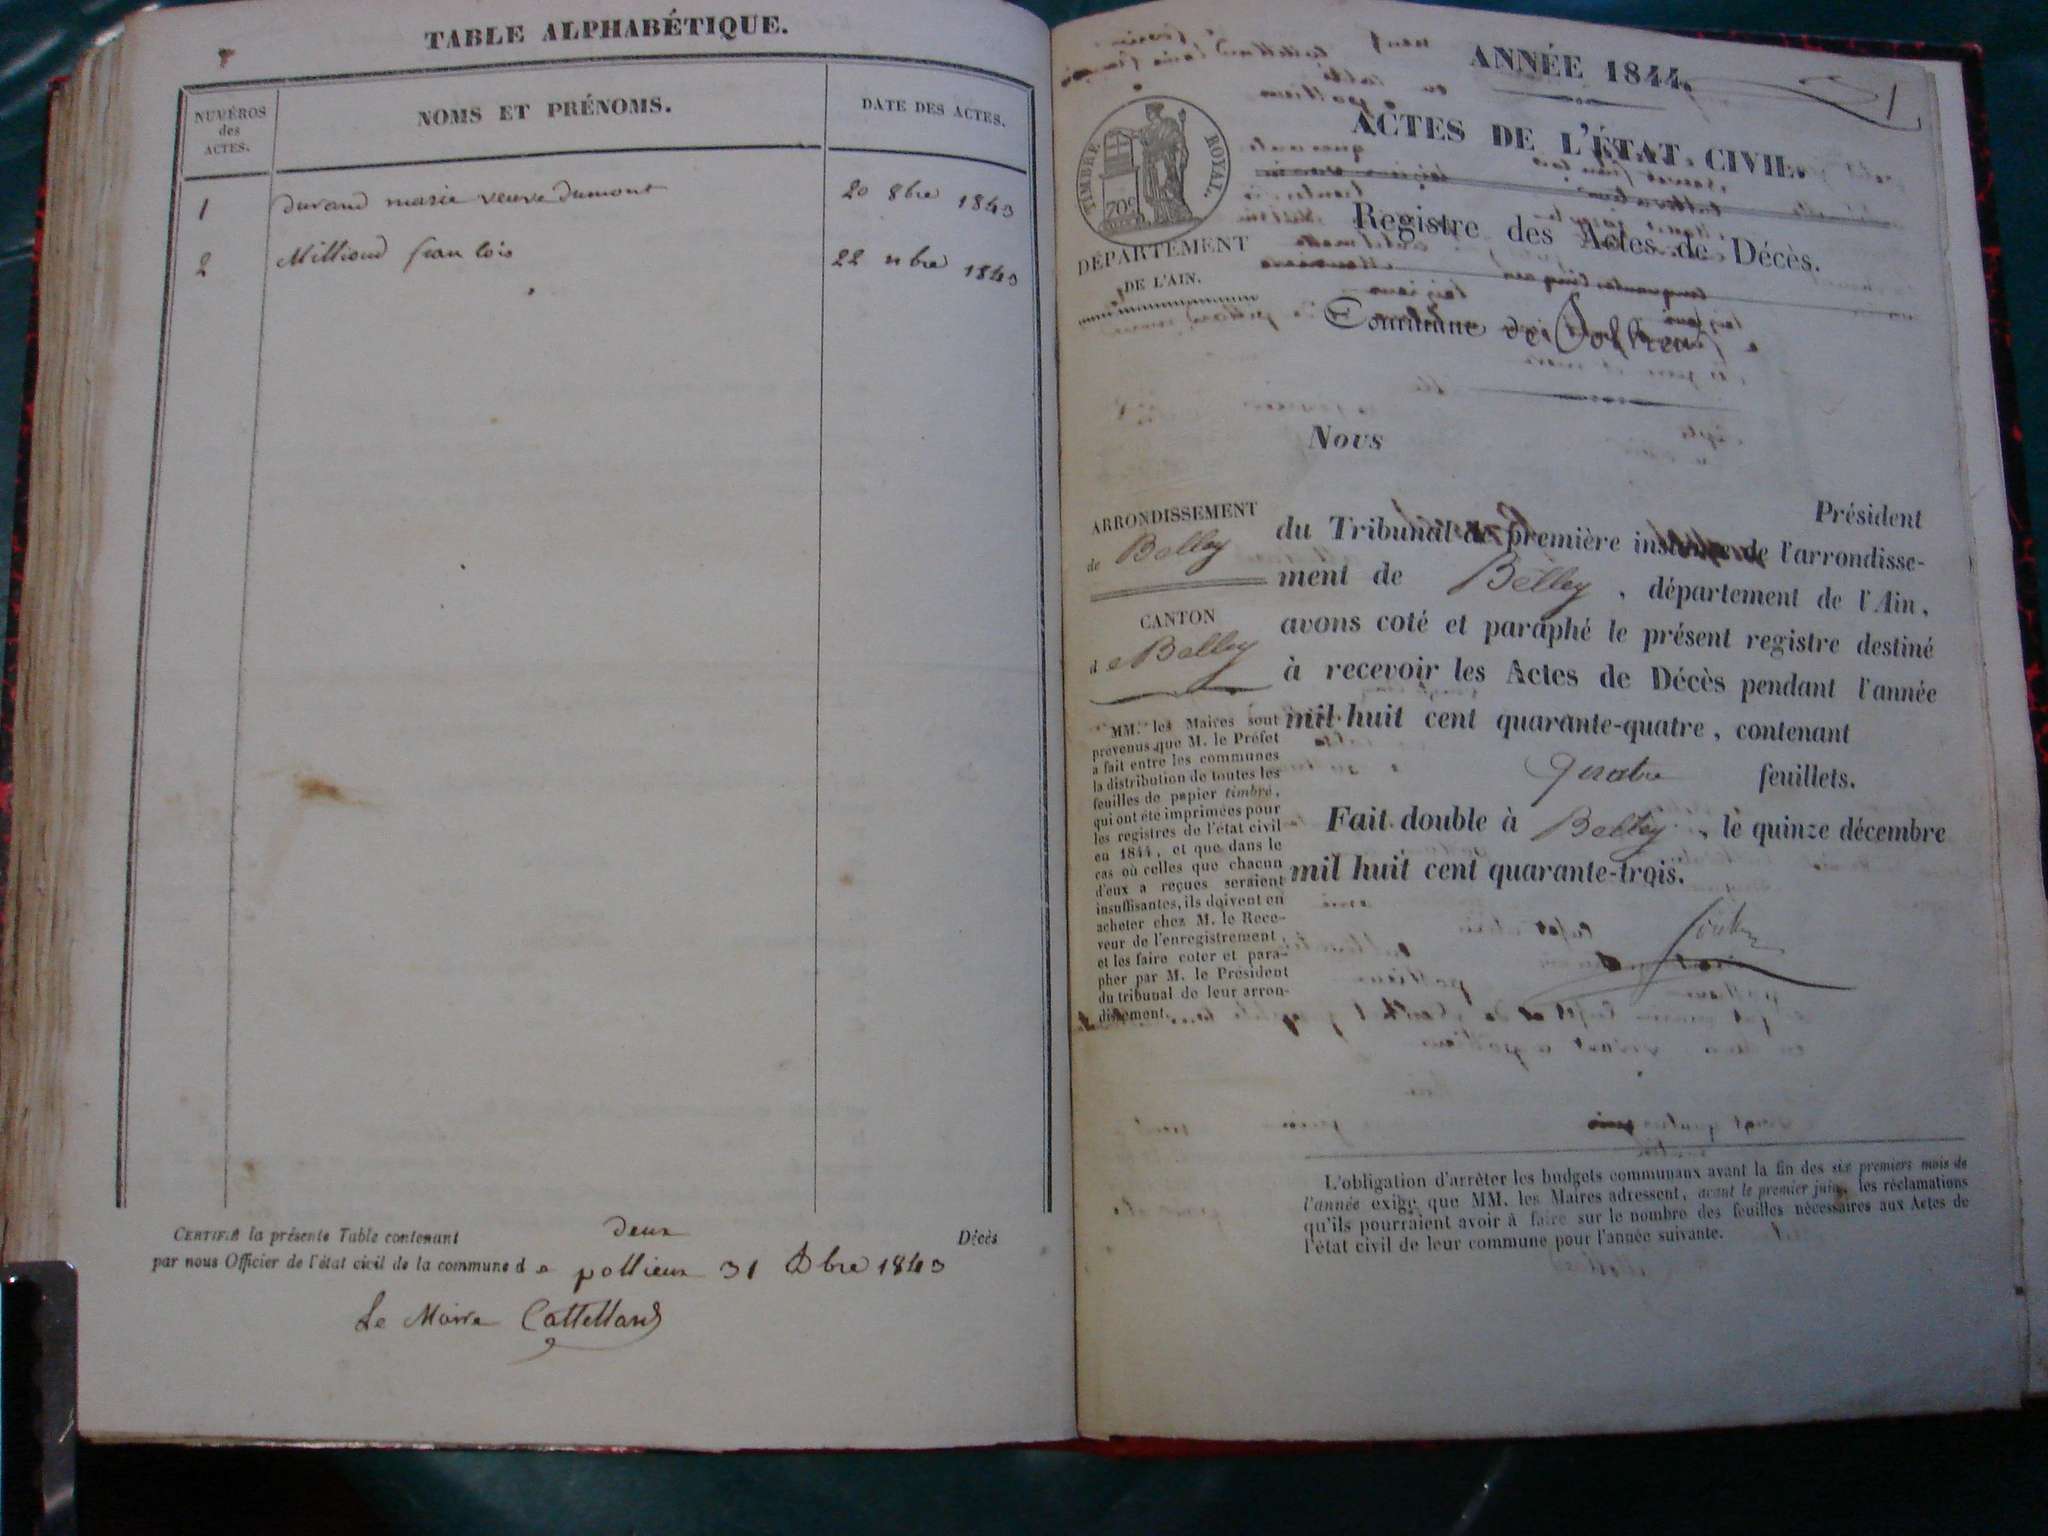 TABLE ALPHABÉTIQUE.
NUMÉROS
des
ACTES.
NOMS ET PRÉNOMS.
DATE DES ACTES.
1 durand marie veuve dumont 20 8bre 1843
2 Milliond francois 22 nbre 1843
CERTIFIÉ la présente Table contenant deux Décès
par nous Officier de l'état civil de la commune de pollieux 31 Dbre 1843
Le Maire Cattelland
ANNÉE 1844.
1
ACTES DE L'ÉTAT CIVIL.
TIMBRE ROYAL.
70c
Registre des Actes de Décès.
DÉPARTEMENT
DE L'AIN.
Commune de Pollieu
Nous
Président
ARRONDISSEMENT
de Belley
CANTON
de Belley
du Tribunal de première instance de l'arrondisse-
ment de Belley, département de l'Ain,
avons coté et paraphé le présent registre destiné
à recevoir les Actes de Décès pendant l'année
mil huit cent quarante-quatre, contenant
quatre feuillets.
Fait double à Belley, le quinze décembre
mil huit cent quarante-trois.
MM. les Maires sont
prévenus que M. le Préfet
a fait entre les communes
la distribution de toutes les
feuilles de papier timbré,
qui ont été imprimées pour
les registres de l'état civil
en 1844, et que dans le
cas où celles que chacun
d'eux a reçues seraient
insuffisantes, ils doivent en
acheter chez M. le Rece-
veur de l'enregistrement,
et les faire coter et para-
pher par M. le Président
du tribunal de leur arron-
dissement.
L'obligation d'arrêter les budgets communaux avant la fin des six premiers mois de
l'année exige que MM. les Maires adressent, avant le premier juin, les réclamations
qu'ils pourraient avoir à faire sur le nombre des feuilles nécessaires aux Actes de
l'état civil de leur commune pour l'année suivante.